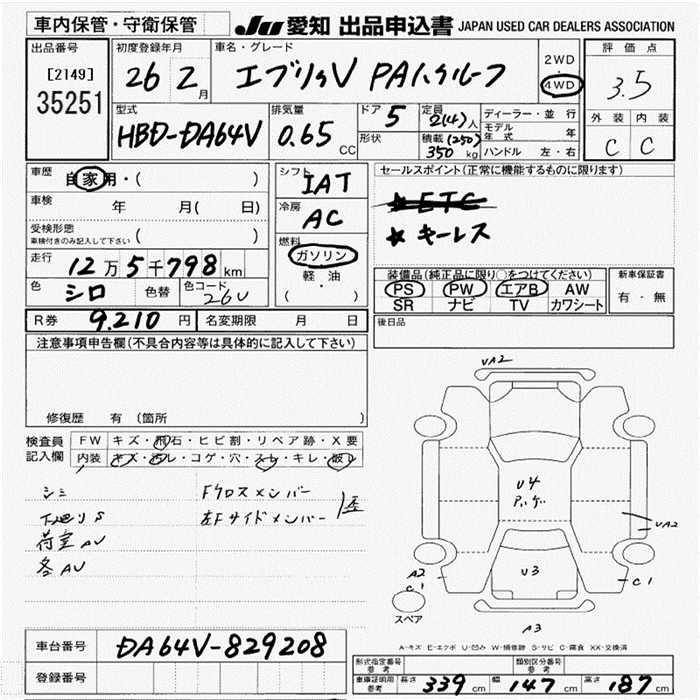 車内保管・守衛保管
JU 愛知 出品申込書 JAPAN USED CAR DEALERS ASSOCIATION
出品番号
[2149]
35251
初度登録年月
26 2月
車名・グレード
エブリィV PAハイルーフ
2WD
・
4WD
評価点
3.5
外装 内装
C C
型式
HBD-DA64V
排気量
0.65 CC
ドア 5
形状
定員 2(4)人
積載 (250)
350 kg
ディーラー・並行
モデル年式 年
ハンドル 左・右
車歴 自家用・( )
車検 年 月( 日)
受検形態
車検付きのみ記入して下さい ( )
走行 12万5千798km
色 シロ 色替 色コード 26U
シフト IAT
冷房 AC
燃料
ガソリン
軽・油
( )
セールスポイント(正常に機能するものに限ります)
★ ETC
★ キーレス
装備品(純正品に限り○をつけてください)
PS PW エアB AW
SR ナビ TV カワシート
新車保証書
有・無
R券 9.210円 名変期限 月 日
後日品
注意事項申告欄(不具合内容等は具体的に記入して下さい)
修復歴 有(箇所 )
検査員
記入欄
FW キズ・飛石・ヒビ割・リペア跡・X要
内装 キズ・汚レ・コゲ・穴・スレ・キレ・散レ
シミ
下廻りS
荷室AU
各AU
Fクロスメンバー
左Fサイドメンバー
UA2
U4
U3
UA2
A2
C1
C1
A3
スペア
A-キズ E-エクボ U-凹み W-補修跡 S-サビ C-腐食 XX-交換済
車台番号 DA64V-829208
登録番号
形式指定番号
参考
類別区分番号
参考
車庫証明用
参考
長さ 339cm 幅 147cm 高さ 187cm